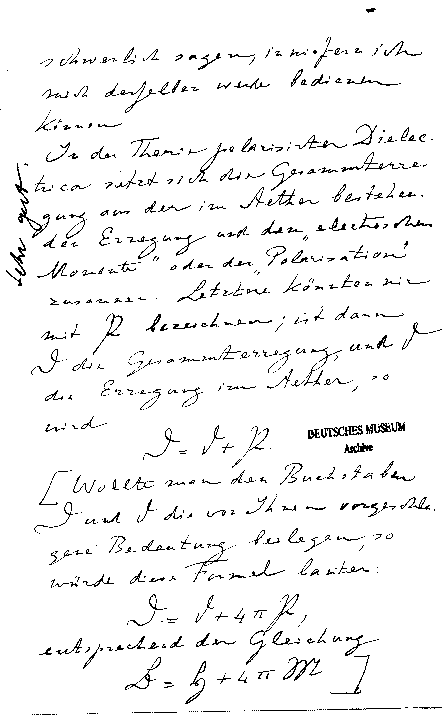 schwerlich sagen, inwiefern ich
mich derselben werde bedienen
können
In der Theorie polarisirter Dielec-
trica setzt sich die Gesammterre-
gung aus der im Aether bestehen-
den Erregung und dem „electrischen
Momente" oder der „Polarisation"
zusammen. Letztere könnten wir
mit P bezeichnen; ist dann
die Gesammterregung und
die Erregung im Aether, so
wird
DEUTSCHES MUSEUM
Archive
[Wollte man den Buchstaben
und die von Ihnen vorgeschla-
gene Bedeutung beilegen, so
würde diese Formel lauten:
entsprechend der Gleichung
Sehr gut.